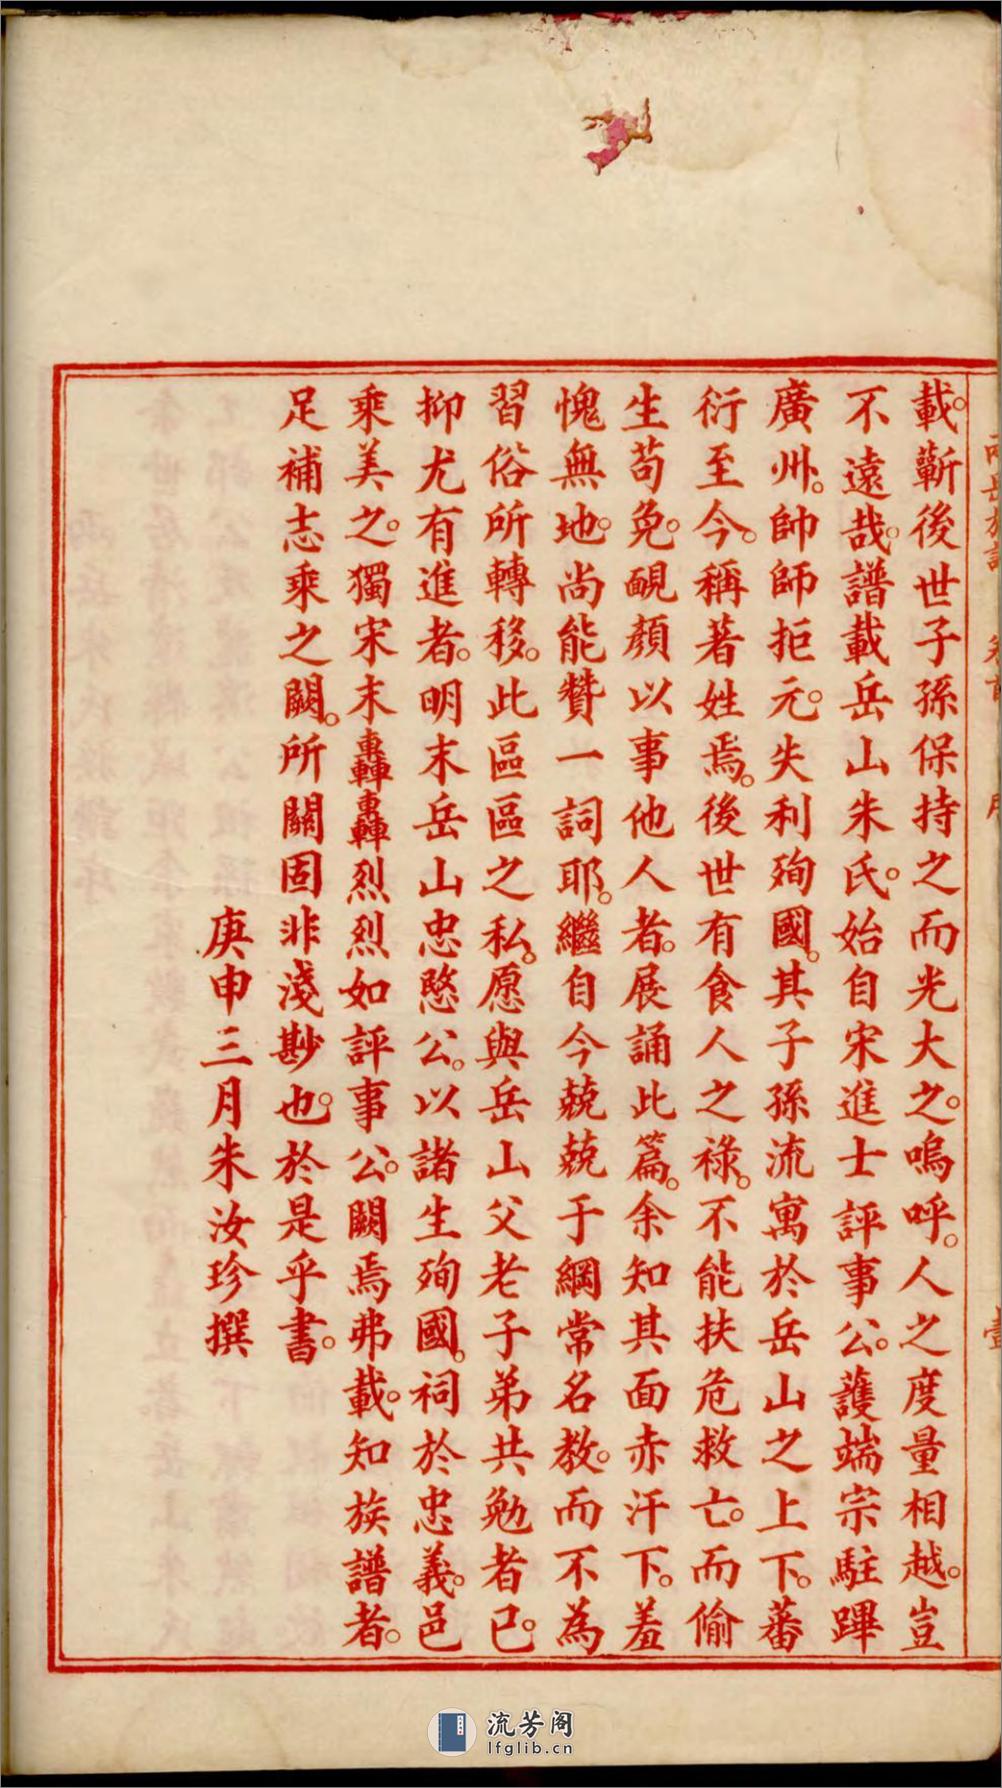 載。蘄後世子孫保持之而光大之。嗚呼。人之度量相越。豈
不遠哉。譜載岳山朱氏。始自宋進士評事公。護端宗駐蹕
廣州。帥師拒元。失利殉國。其子孫流寓於岳山之上下。蕃
衍至今。稱著姓焉。後世有食人之祿。不能扶危救亡。而偷
生苟免。靦顏以事他人者。展誦此篇。余知其面赤汗下。羞
愧無地。尚能贊一詞耶。繼自今兢兢于綱常名教。而不為
習俗所轉移。此區區之私。愿與岳山父老子弟共勉者已。
抑尤有進者。明末岳山忠愍公。以諸生殉國。祠於忠義。邑
乘美之。獨宋末轟轟烈烈如評事公。闕焉弗載。知族譜者。
足補志乘之闕。所關固非淺尠也。於是乎書。
庚申三月朱汝珍撰
流芳阁
lfglib.cn